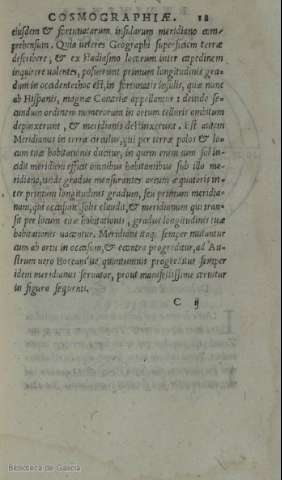 COSMOGRAPHIÆ. 18
eiusdem & fortunatarum insularum meridiano com-
prehensum. Quia ueteres Geographi superficiem terræ
describere, & ex stadiasmo locorum inter capedinem
inquirere uolentes, posuerunt primum longitudinis gra-
dum in occidente: hoc est, in fortunatis insulis, quæ nunc
ab Hispanis, magnæ Canariæ appellantur: deinde se-
cundum ordinem numerorum in ortum cæteros ambitum
depinxerunt, & meridianis distinxerunt. Est autem
Meridianus in terra circulus, qui per terræ polos & lo-
cum tuæ habitationis ducitur, in quem enim cum sol in-
cidit meridiem efficit omnibus habitantibus sub illo me-
ridiano, unde gradus mensurantes arcum æquatoris in-
ter primum longitudinis gradum, seu primum meridia-
num, qui occasum solis claudit, & meridianum qui tran-
sit per locum tuæ habitationis, gradus longitudinis tuæ
habitationis uocantur. Meridiani itaq; semper mutantur
cum ab ortu in occasum, & econtra progreditur, ad Au-
strum uero Boreamue quantumuis progressus semper
idem meridianus seruatur, prout manifestissime cernitur
in figura sequenti.
C ij
Biblioteca de Galicia